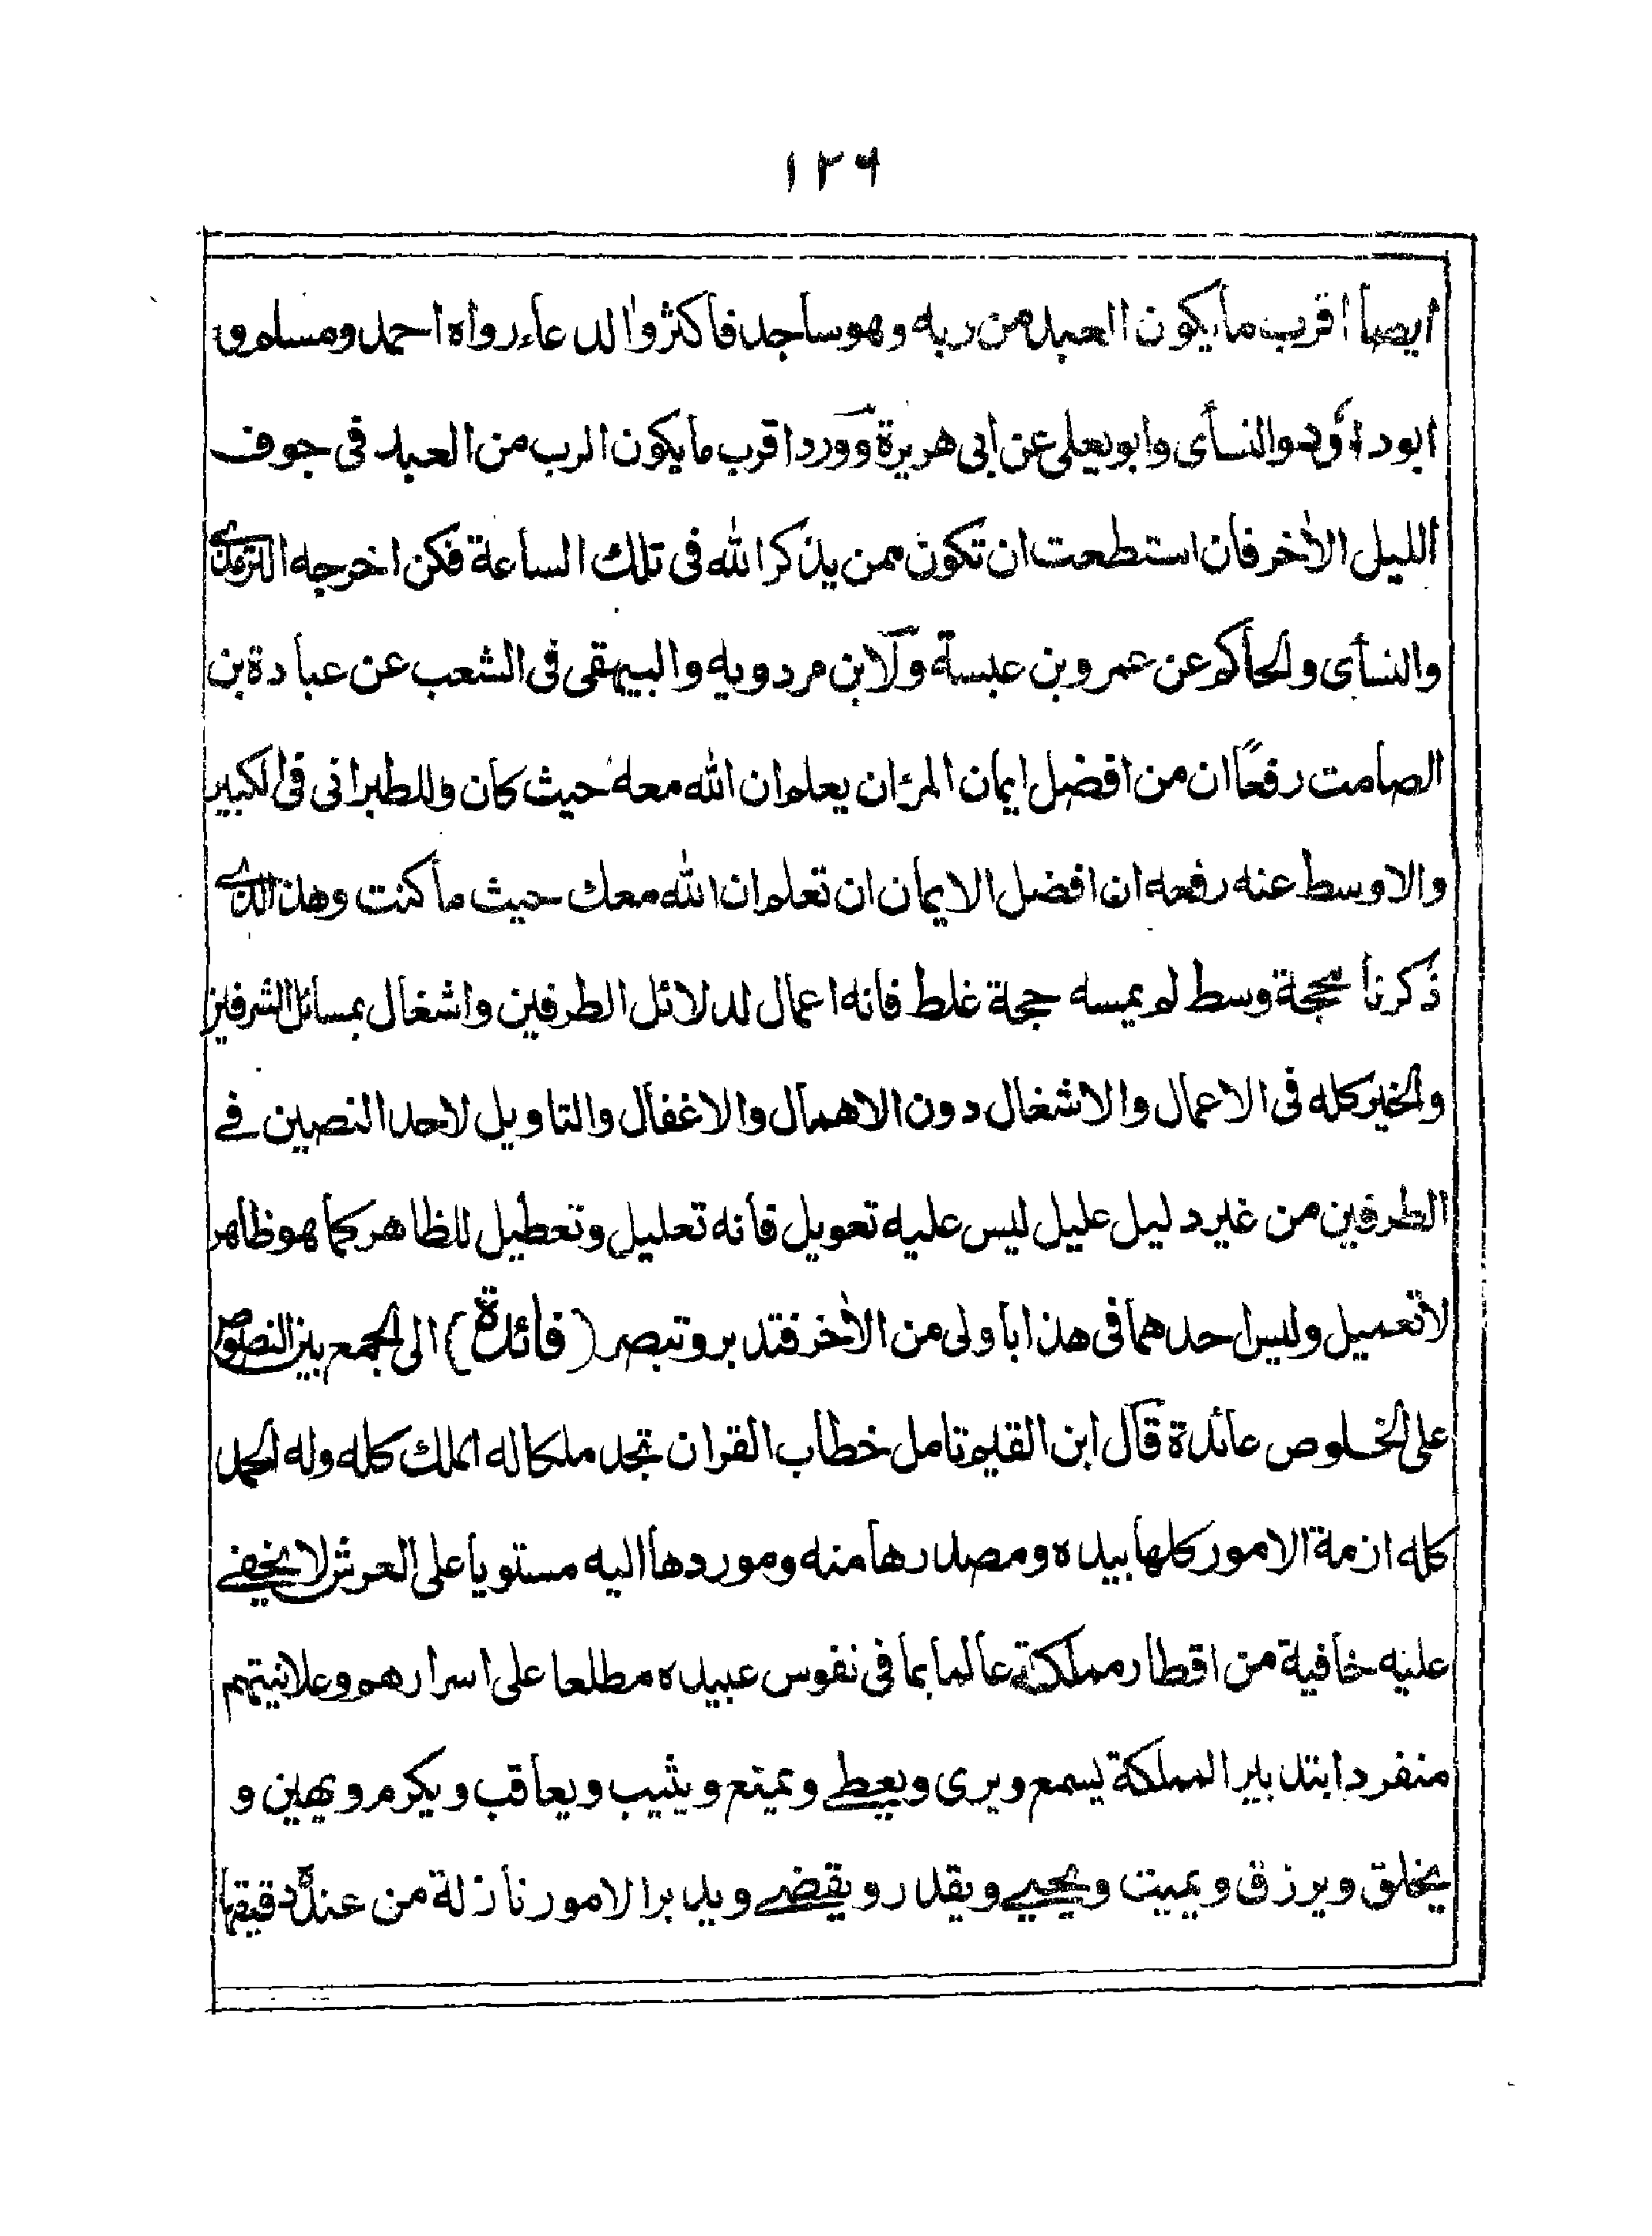 ١٢٩
ايضا اقرب ما يكون العبد من ربه وهو ساجد فاكثروا الدعاء رواه احمد ومسلم و
ابو داؤد والنسأى وابو يعلى عن ابى هريرة وورد اقرب ما يكون الرب من العبد فى جوف
الليل الأخر فان استطعت ان تكون ممن يذكر الله فى تلك الساعة فكن اخرجه الترمذى
والنسأى والحاكم عن عمرو بن عبسة ولابن مردويه والبيهقى فى الشعب عن عبادة بن
الصامت رفعًا ان من افضل ايمان المرٔ ان يعلم ان الله معه حيث كان وللطبرانى فى الكبير
والاوسط عنه رفعه ان افضل الايمان ان تعلم ان الله معك حيث ما كنت وهذا الذى
ذكرنا محجة وسط لم يمسه حجة غلط فانه اعمال لدلائل الطرفين واشغال بمسائل الشرفين
والخير كله فى الاعمال والاشغال دون الاهمال والاغفال والتاويل لاحد النصين فے
الطرفين من غير دليل عليل ليس عليه تعويل فانه تعليل وتعطيل للظاهر كما هو ظاهر
لا تعميل وليس احدهما فى هذا باولى من الأخر فتدبر وتبصر (فائدة) الى الجمع بين النصوص
على الخلوص عائدة قال ابن القيم تامل خطاب القران تجد ملكا له الملك كله وله الحمد
كله ازمة الامور كلها بيده ومصدرها منه وموردها اليه مستويا على العرش لا يخفے
عليه خافية من اقطار مملكته عالما بما فى نفوس عبيده مطلعا على اسرارهم وعلانيتهم
منفردا بتدبير المملكة يسمع ويرى ويعطے ويمنع ويثيب ويعاقب ويكرم ويهين و
يخلق ويرزق ويميت ويحيے ويقدر ويقضے ويدبر الامور نازلة من عنده دقيقها